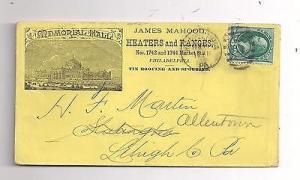 MEMORIAL HALL
JAMES MAHOOD,
HEATERS and RANGES,
Nos. 1742 and 1744 Market St.
PHILADELPHIA.
TIN ROOFING and SPOUTING.
H. F. Martin
Allentown
Lehigh Co